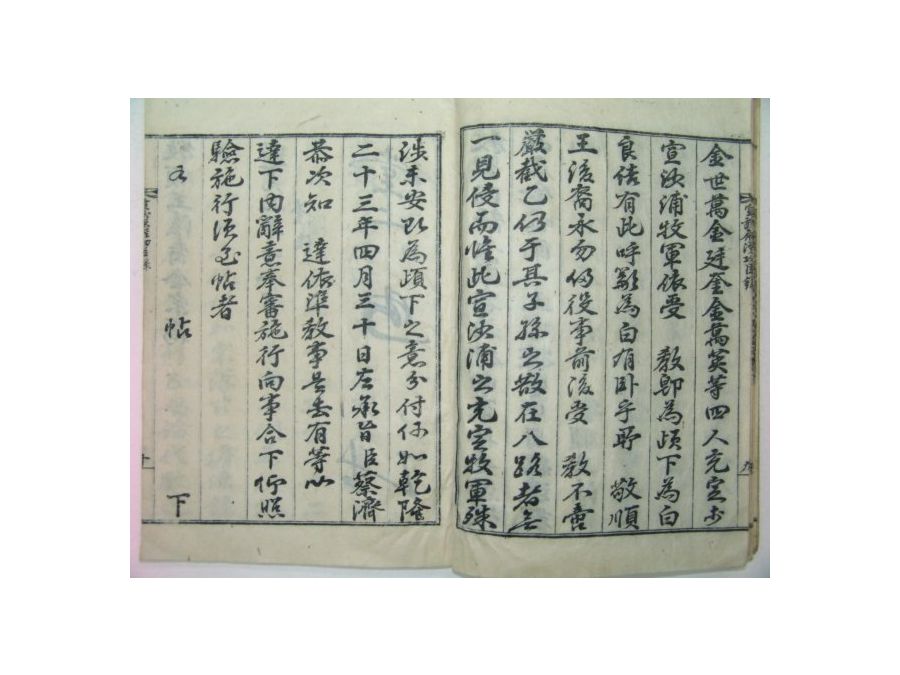 金世萬金廷奎金萬英等四人充定於
宣沙浦牧軍依受 教卽為頉下為白
良結有此呼籲為白有臥乎所 敬順
王後裔永勿侵役事前後受 教不啻
嚴截乙仍于其子孫之散在八路者無
一見侵而惟此宣沙浦之充定牧軍殊
涉未安以為頉下之意分付何如乾隆
二十三年四月三十日左承旨臣蔡濟
恭次知 達依準教事是去有等以
達下內辭意奉審施行向事合下仰照
驗施行須至帖者
右 帖 下